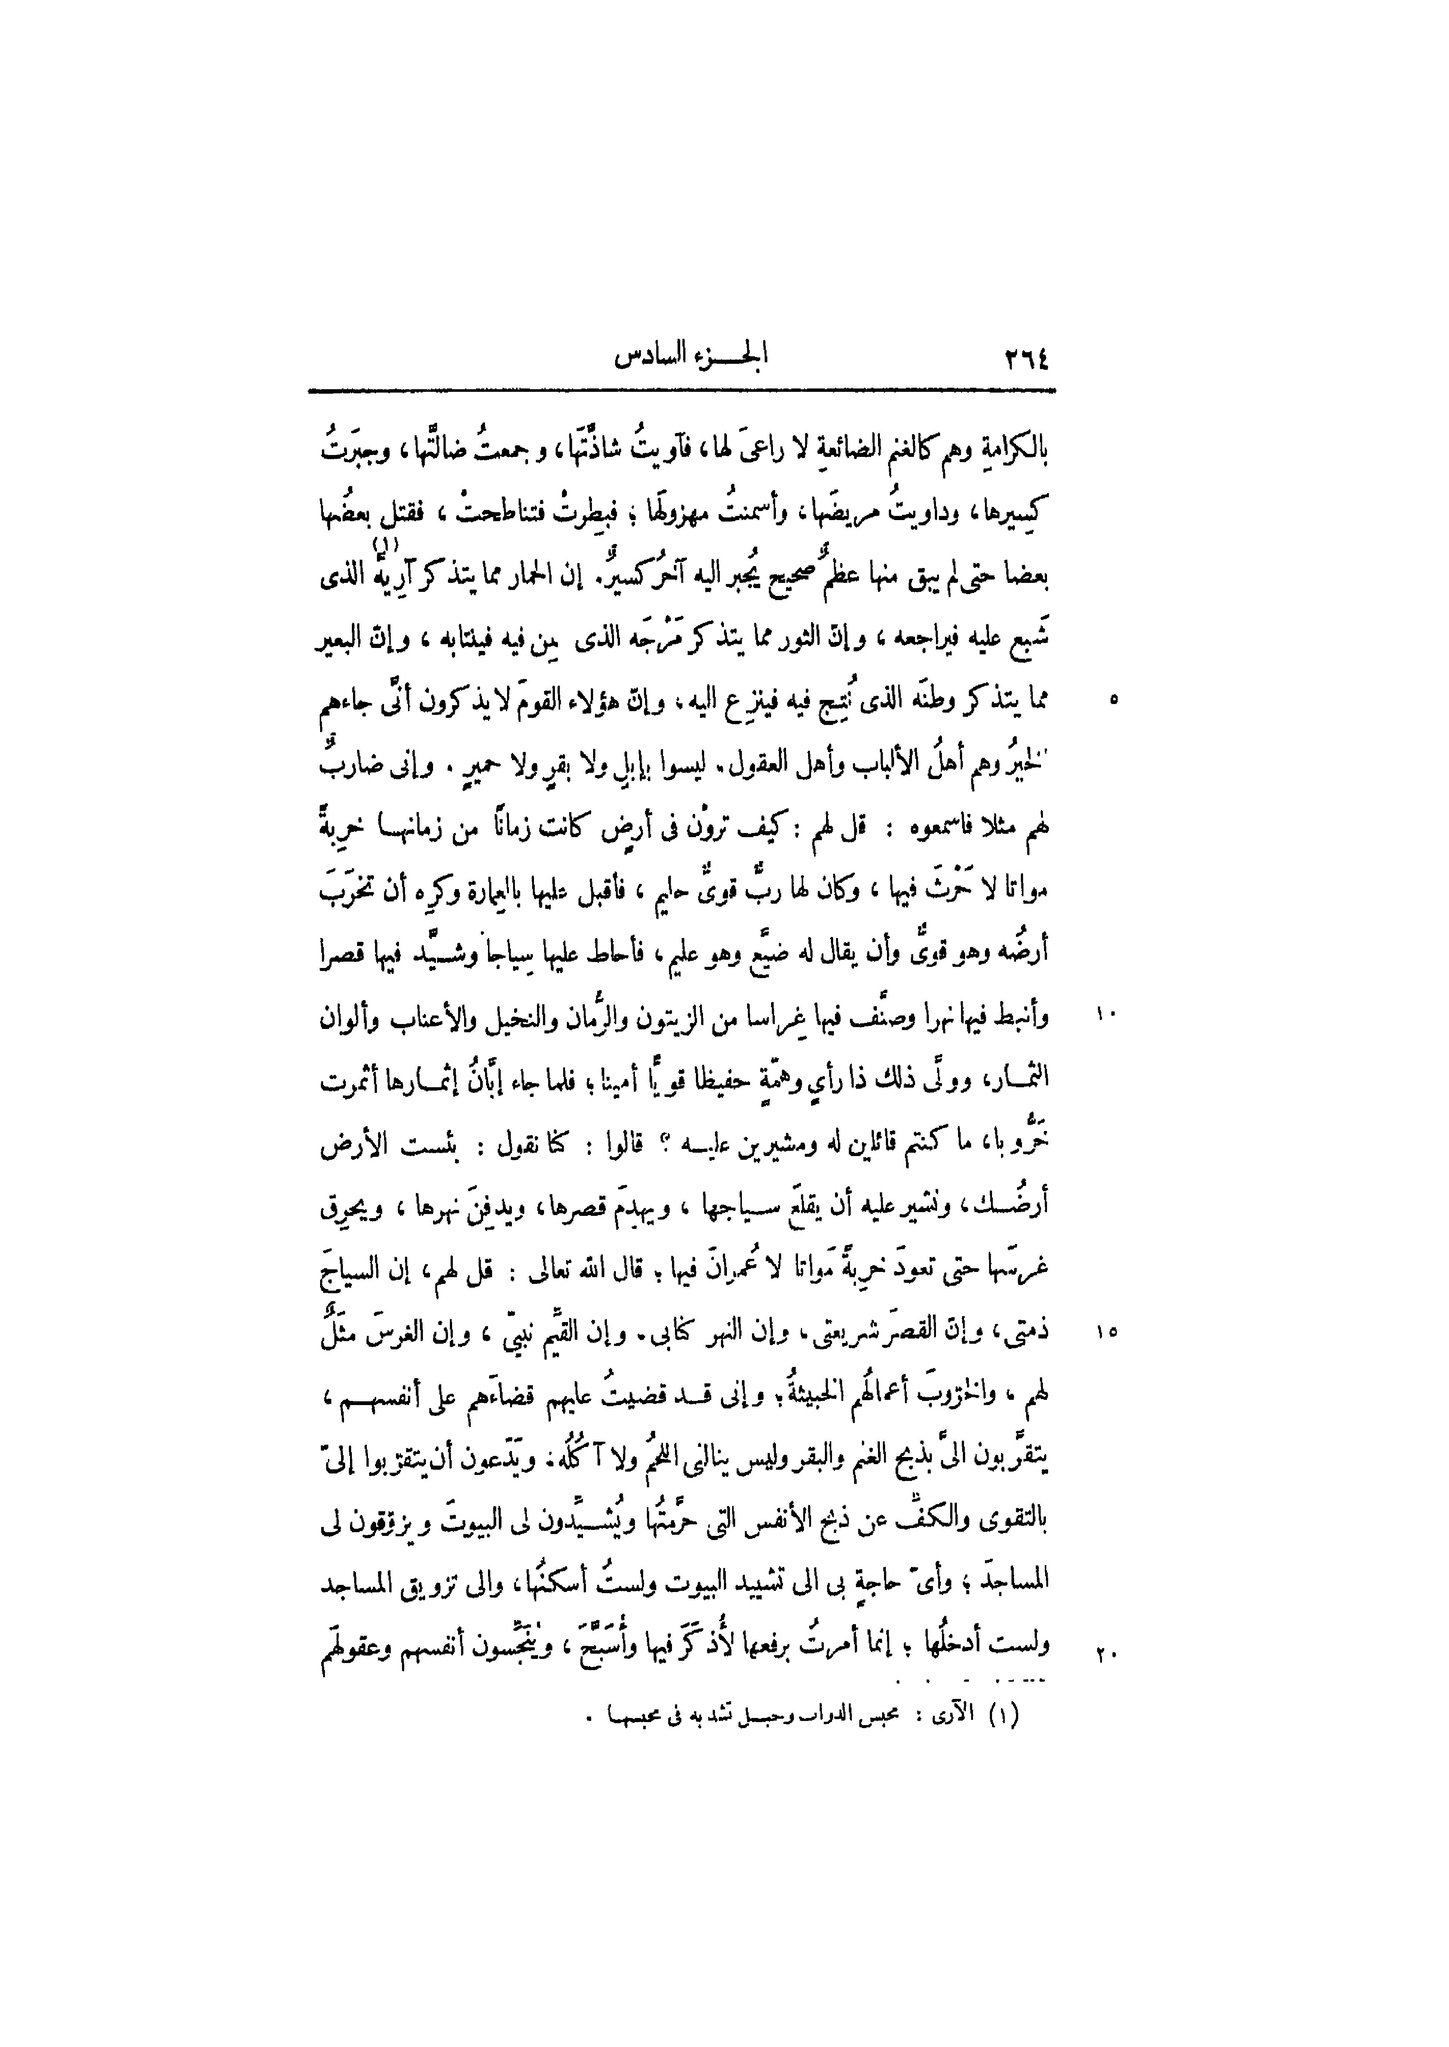 ٢٦٤ الجزء السادس
بالكرامةِ وهم كالغنم الضائعةِ لا راعىَ لها، فآويتُ شاذَّتَها، وجمعتُ ضالَّتها، وجبَرتُ
كسِيرها، وداويتُ مريضَها، وأسمنتُ مهزولَها ؛ فبطِرتْ فتناطحتْ ، فقتل بعضُها
بعضا حتى لم يبق منها عظمٌ صحيح يُجبر اليه آخرُ كسيرٌ. إن الحمار مما يتذكر آرِيهُ (١) الذى
شَبع عليه فيراجعه ، وإنّ الثور مما يتذكر مَرْجَه الذى سمِن فيه فينتابه ، وإنّ البعير
مما يتذكر وطنَه الذى نُتِج فيه فينزِع اليه، وإنّ هؤلاء القومَ لا يذكرون أنَّى جاءهم ٥
الخيرُ وهم أهلُ الألباب وأهل العقول. ليسوا بإبلٍ ولا بقرٍ ولا حميرٍ . وإنى ضاربٌ
لهم مثلا فاسمعوه : قل لهم : كيف ترون فى أرضٍ كانت زمانًا من زمانها خرِبةً
مواتا لا حَرْثَ فيها ، وكان لها ربٌّ قوىٌّ حليم ، فأقبل عليها بالعِمارة وكرِه أن تخرَبَ
أرضُه وهو قوىٌّ وأن يقال له ضيَّع وهو عليم، فأحاط عليها سِياجا وشيَّد فيها قصرا
وأنبط فيها نهرا وصنَّف فيها غِراسا من الزيتون والرُّمان والنخيل والأعناب وألوان ١٠
الثمار، وولَّى ذلك ذا رأىٍ وهمّةٍ حفيظا قويًّا أمينا؛ فلما جاء إبَّانُ إثمارها أثمرت
خَرُّوبا، ما كنتم قائلين له ومشيرين عليه ؟ قالوا : كنا نقول : بئست الأرض
أرضُك، ونشير عليه أن يقلَعَ سياجها ، ويهدِمَ قصرها، ويدفِنَ نهرها ، ويحرِق
غرسَها حتى تعودَ خرِبةً مَواتا لا عُمرانَ فيها ؛ قال الله تعالى : قل لهم، إن السياجَ
ذمتى، وإنّ القصرَ شريعتى، وإن النهر كتابى. وإن القيِّم نبيىّ ، وإن الغرسَ مثَلٌ ١٥
لهم ، والخروبَ أعمالُهم الخبيثةُ؛ وإنى قد قضيتُ عليهم قضاءَهم على أنفسهم ،
يتقرَّبون الىَّ بذبح الغنم والبقر وليس ينالنى اللحمُ ولا آكُلُه. ويَدّعون أن يتقرّبوا إلىّ
بالتقوى والكفِّ عن ذبح الأنفس التى حرَّمتُها ويُشيِّدون لى البيوتَ ويزوّقون لى
المساجدَ ؛ وأىّ حاجةٍ بى الى تشييد البيوت ولستُ أسكنُها، والى تزويق المساجد
ولست أدخلُها ؛ إنما أمرتُ برفعها لأُذكَرَ فيها وأُسَبَّحَ ، ويُنَجِّسون أنفسهم وعقولهَم ٢٠
(١) الآرى : محبس الدواب وحبل تشد به فى محبسها .